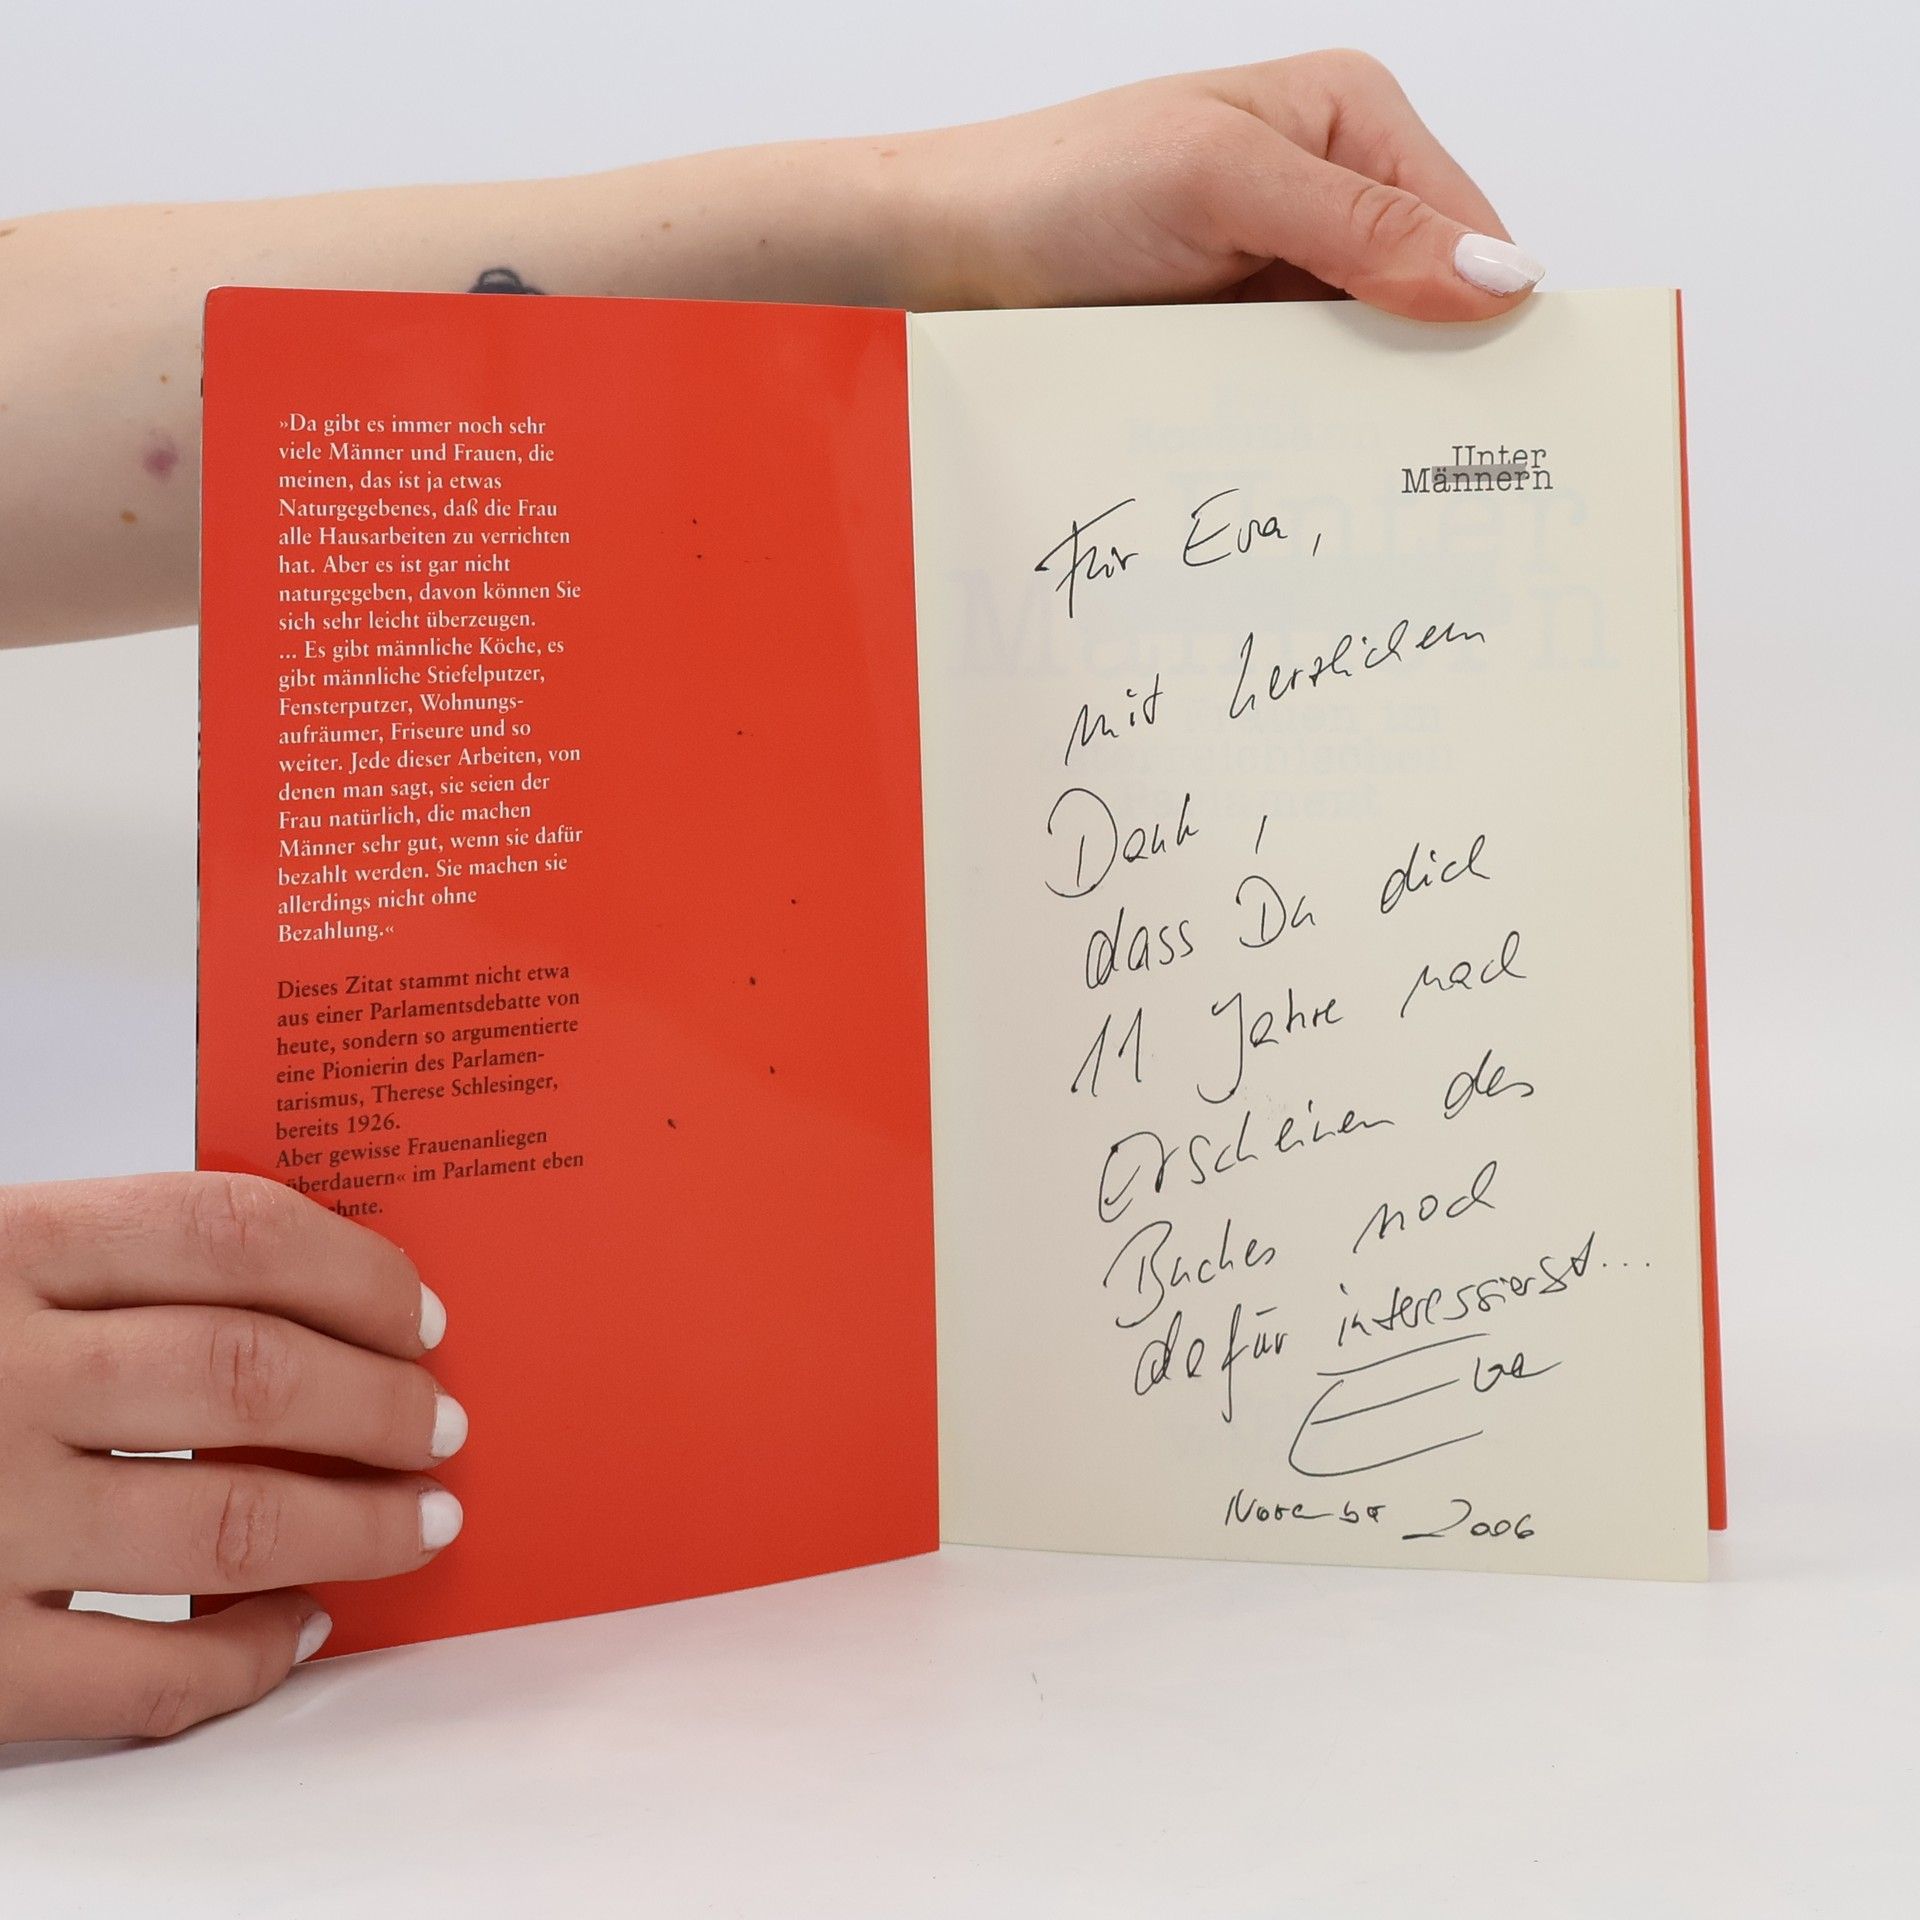 »Da gibt es immer noch sehr
viele Männer und Frauen, die
meinen, das ist ja etwas
Naturgegebenes, daß die Frau
alle Hausarbeiten zu verrichten
hat. Aber es ist gar nicht
naturgegeben, davon können Sie
sich sehr leicht überzeugen.
... Es gibt männliche Köche, es
gibt männliche Stiefelputzer,
Fensterputzer, Wohnungs-
aufräumer, Friseure und so
weiter. Jede dieser Arbeiten, von
denen man sagt, sie seien der
Frau natürlich, die machen
Männer sehr gut, wenn sie dafür
bezahlt werden. Sie machen sie
allerdings nicht ohne
Bezahlung.«
Dieses Zitat stammt nicht etwa
aus einer Parlamentsdebatte von
heute, sondern so argumentierte
eine Pionierin des Parlamen-
tarismus, Therese Schlesinger,
bereits 1926.
Aber gewisse Frauenanliegen
überdauern« im Parlament eben
Unter
Männern
Für Eva,
mit herzlichem
Dank,
dass Du dich
11 Jahre nach
Erscheinen des
Buches noch
dafür interessierst...
Eva
November 2006